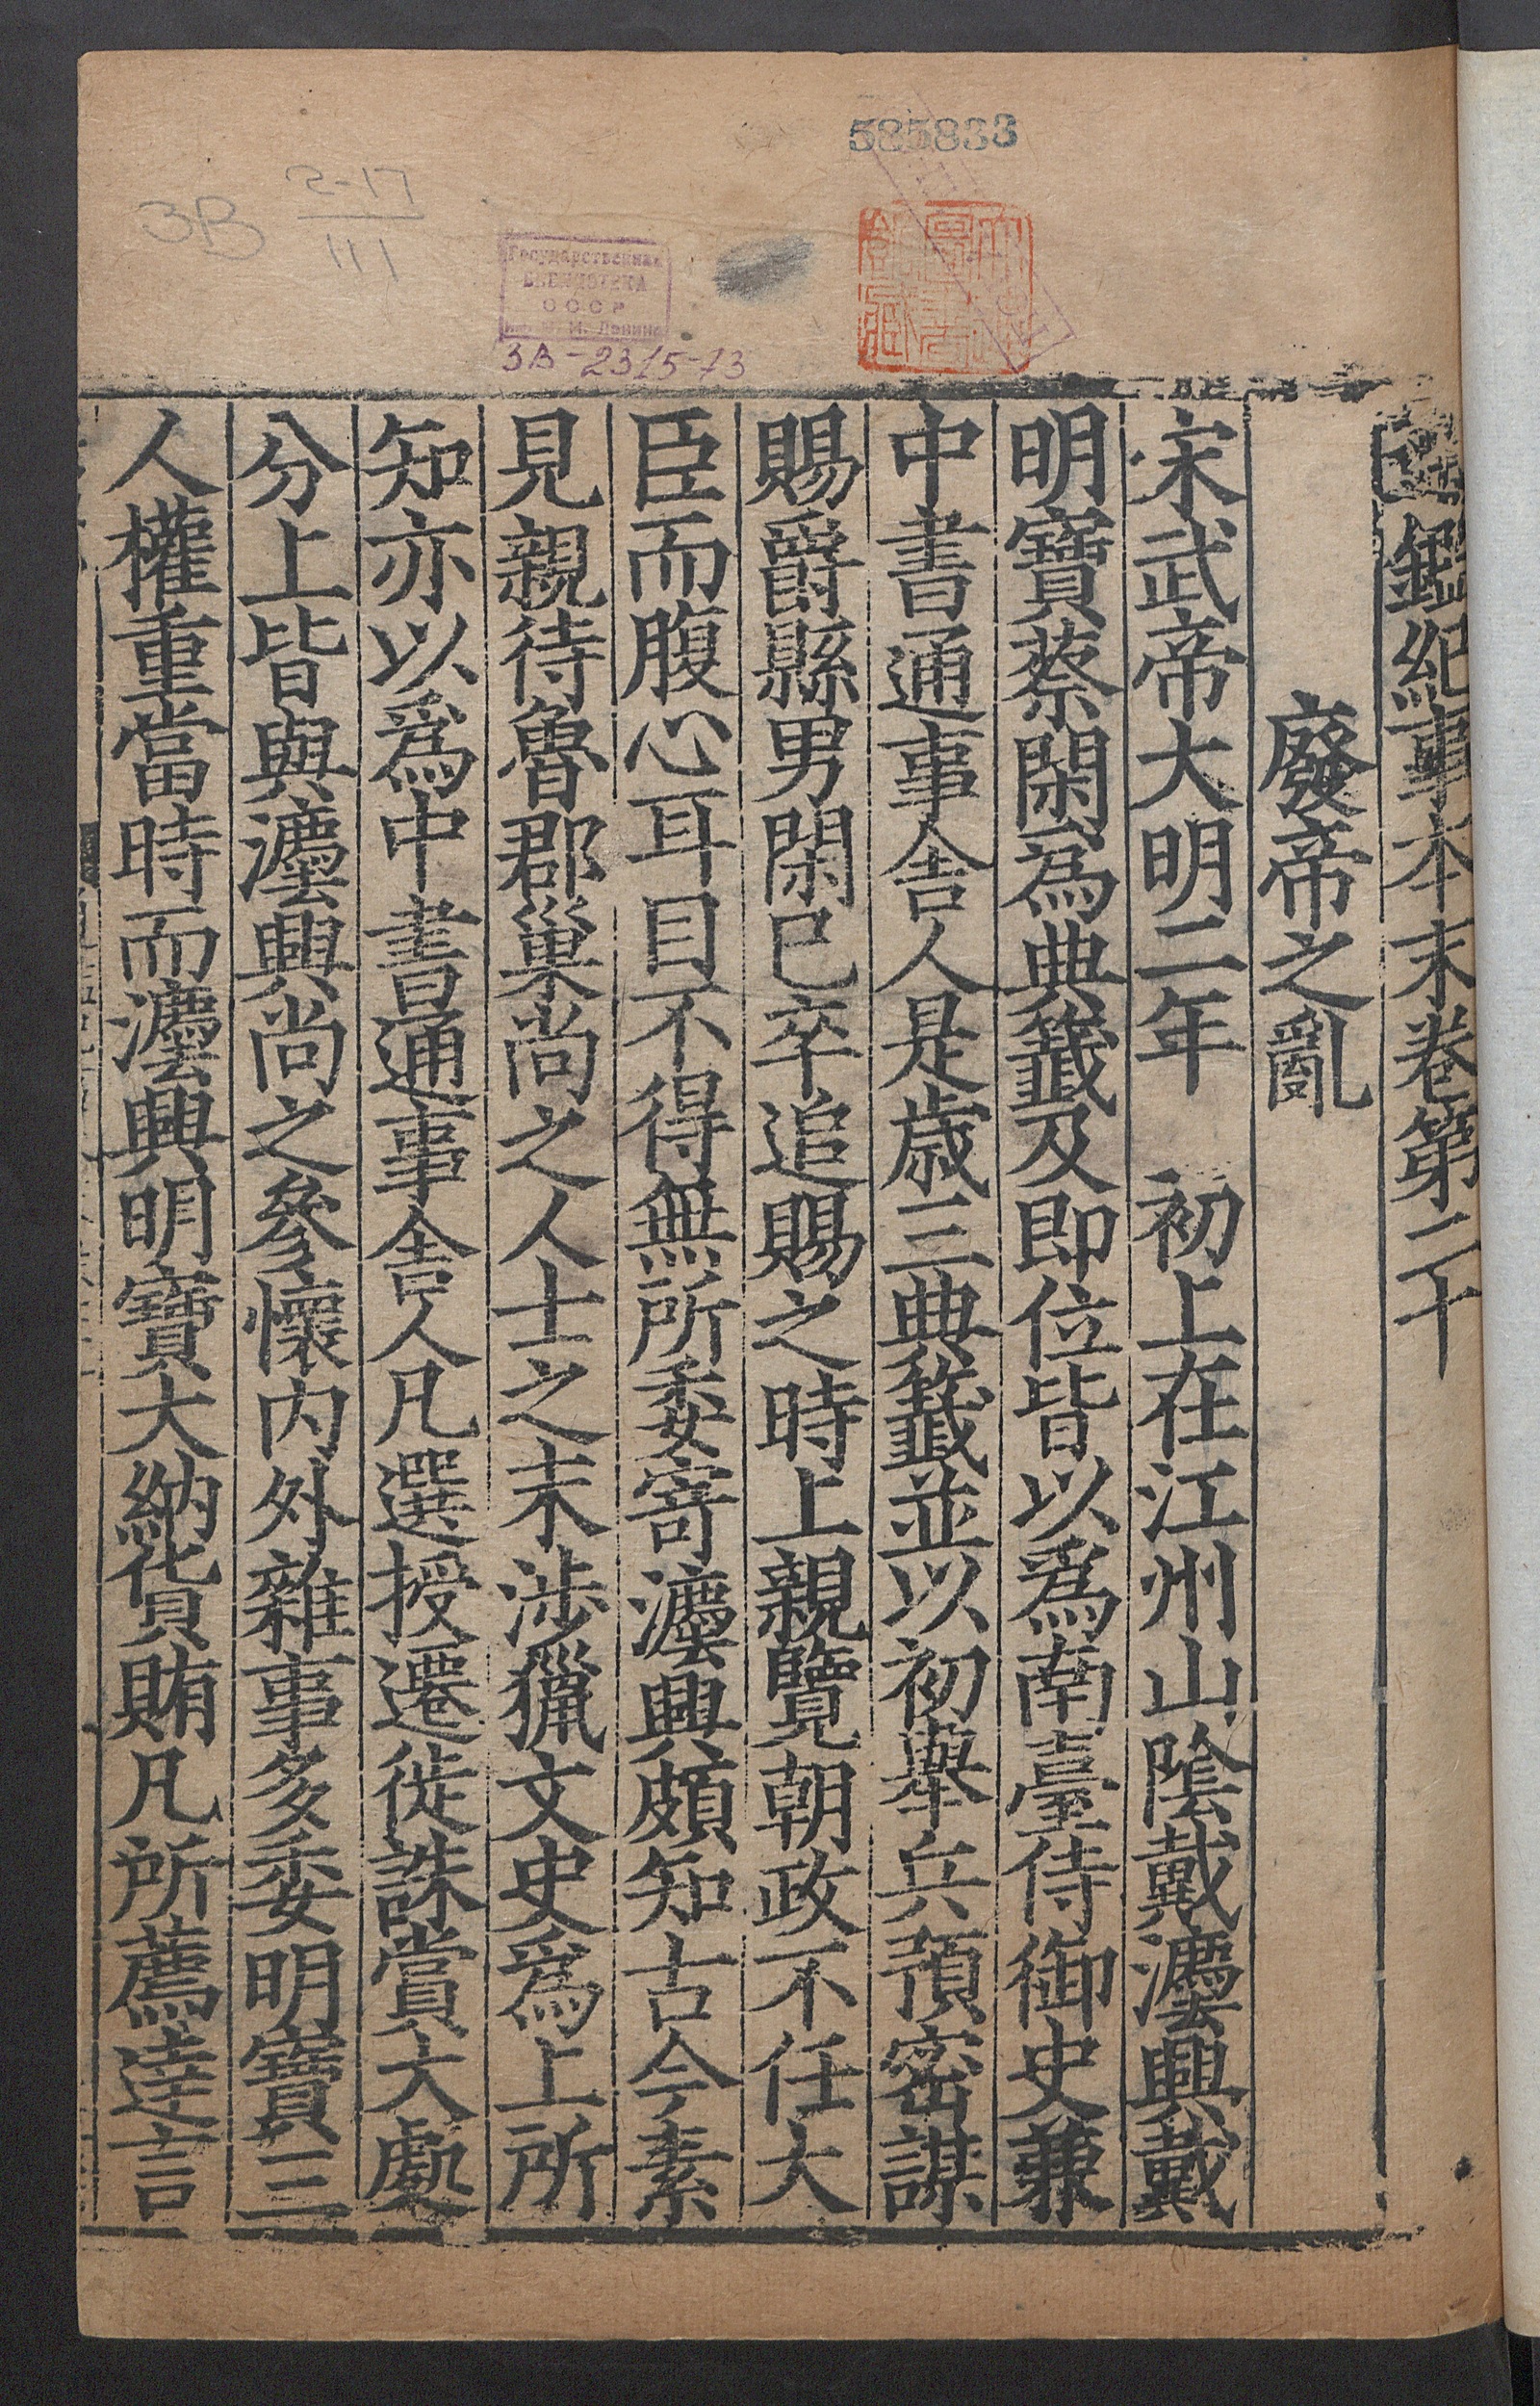 585833
3B 2-17
111
Государственная
БИБЛИОТЕКА
СССР
им. В. И. Ленина
3В-2315-73
鑑紀事本末卷第二十
廢帝之亂
宋武帝大明二年　初上在江州山隂戴灋興戴
明寶蔡閑為典籖及即位皆以爲南臺侍御史兼
中書通事舍人是歳三典籖並以初舉兵預密謀
賜爵縣男閑已卒追賜之時上親覽朝政不任大
臣而腹心耳目不得無所委寄灋興頗知古今素
見親待魯郡巢尚之人士之末涉獵文史爲上所
知亦以爲中書通事舍人凡選授遷徙誅賞大處
分上皆與灋興尚之參懷内外雜事多委明寶三
人權重當時而灋興明寶大納貨賄凡所薦達言